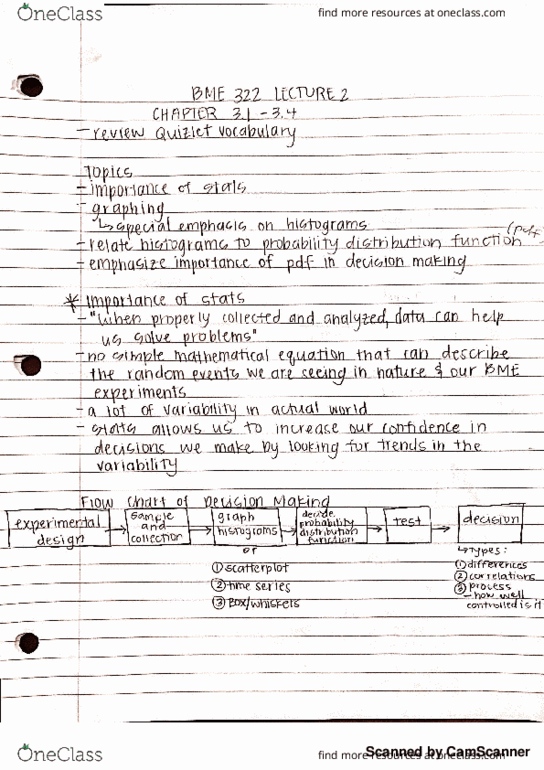 OneClass
find more resources at oneclass.com
BME 322 LECTURE 2
CHAPTER 3.1 - 3.4
- review Quizlet vocabulary
Topics
- importance of stats
- graphing
↳ special emphasis on histograms
- relate histograms to probability distribution function (pdf)
- emphasize importance of pdf in decision making
* Importance of stats
- "when properly collected and analyzed, data can help
us solve problems"
- no simple mathematical equation that can describe
the random events we are seeing in nature & our BME
experiments
- a lot of variability in actual world
- stats allows us to increase our confidence in
decisions we make by looking for trends in the
variability
Flow Chart of Decision Making
experimental design → sample and collection → graph histograms → decide probability distribution function → test → decision
or
① scatterplot
② time series
③ Box/whiskers
↳ Types:
① differences
② correlations
③ process
- how well
controlled is it
OneClass
find more resources at oneclass.com
Scanned by CamScanner